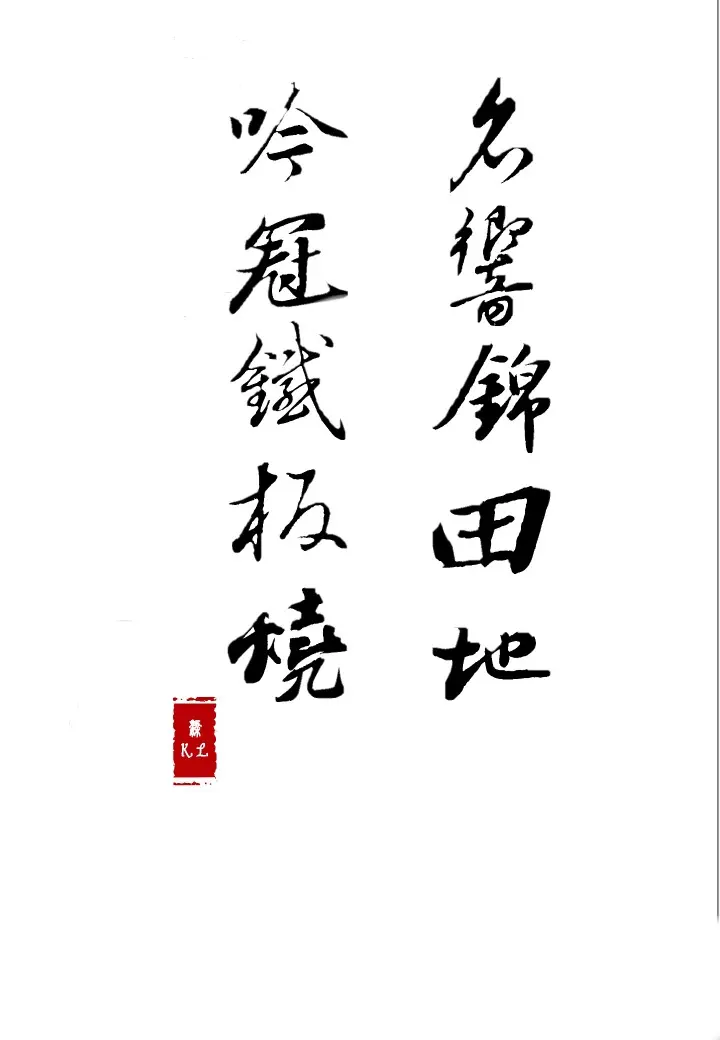 名響錦田地
吟冠鐵板燒
K L